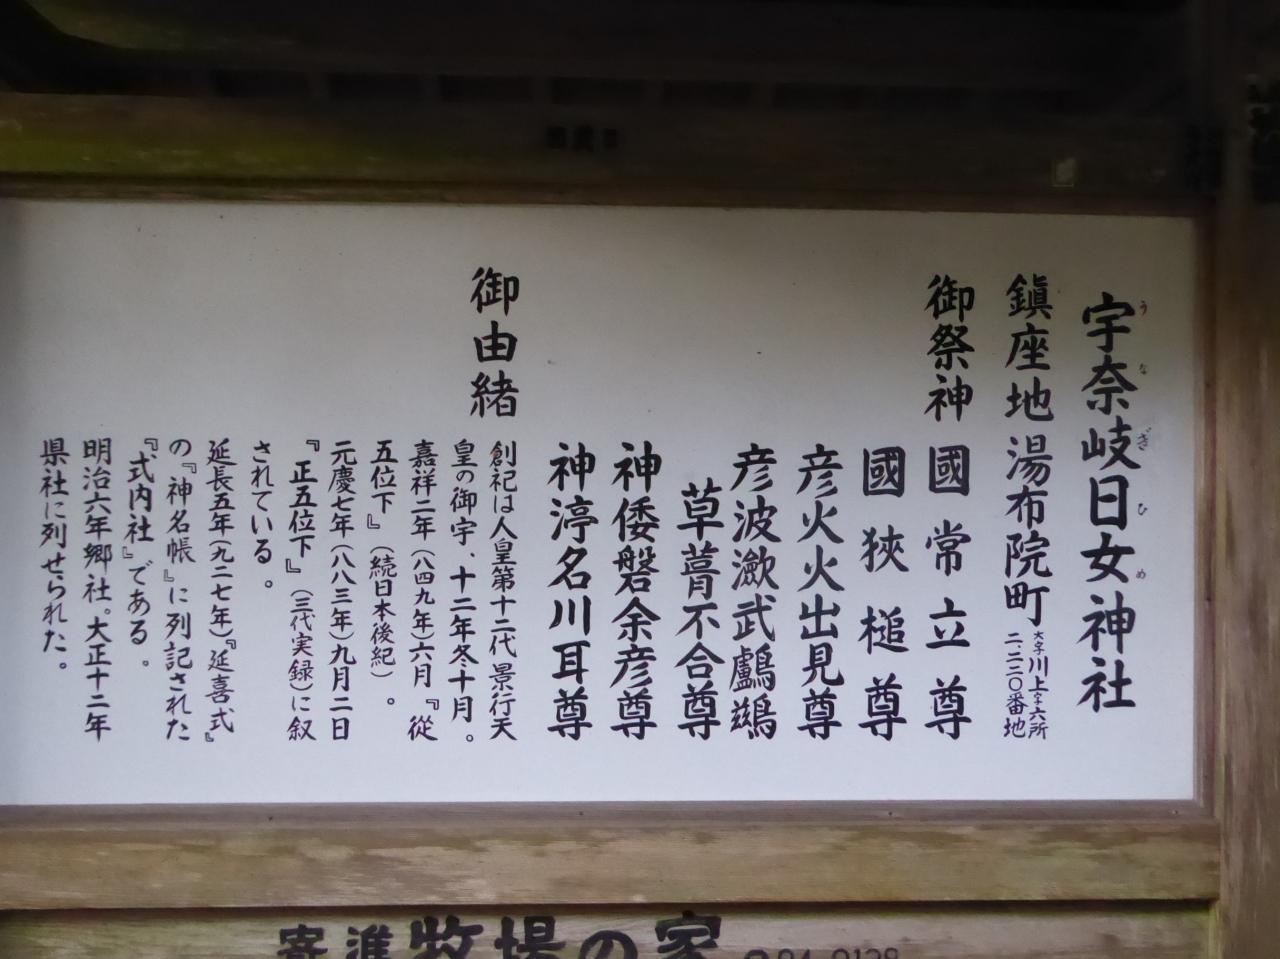 宇奈岐日女神社
うなぎひめ
鎮座地 湯布院町 大字川上字六所
二一二〇番地
御祭神 國常立尊
國狭槌尊
彦火火出見尊
彦波瀲武鸕鷀
草葺不合尊
神倭磐余彦尊
神渟名川耳尊
御由緒
創祀は人皇第十二代景行天
皇の御宇、十二年冬十月。
嘉祥二年(八四九年)六月『従
五位下』(続日本後紀)。
元慶七年(八八三年)九月二日
『正五位下』(三代実録)に叙
されている。
延長五年(九二七年)『延喜式』
の『神名帳』に列記された
『式内社』である。
明治六年郷社。大正十二年
県社に列せられた。
寄進 牧場の家